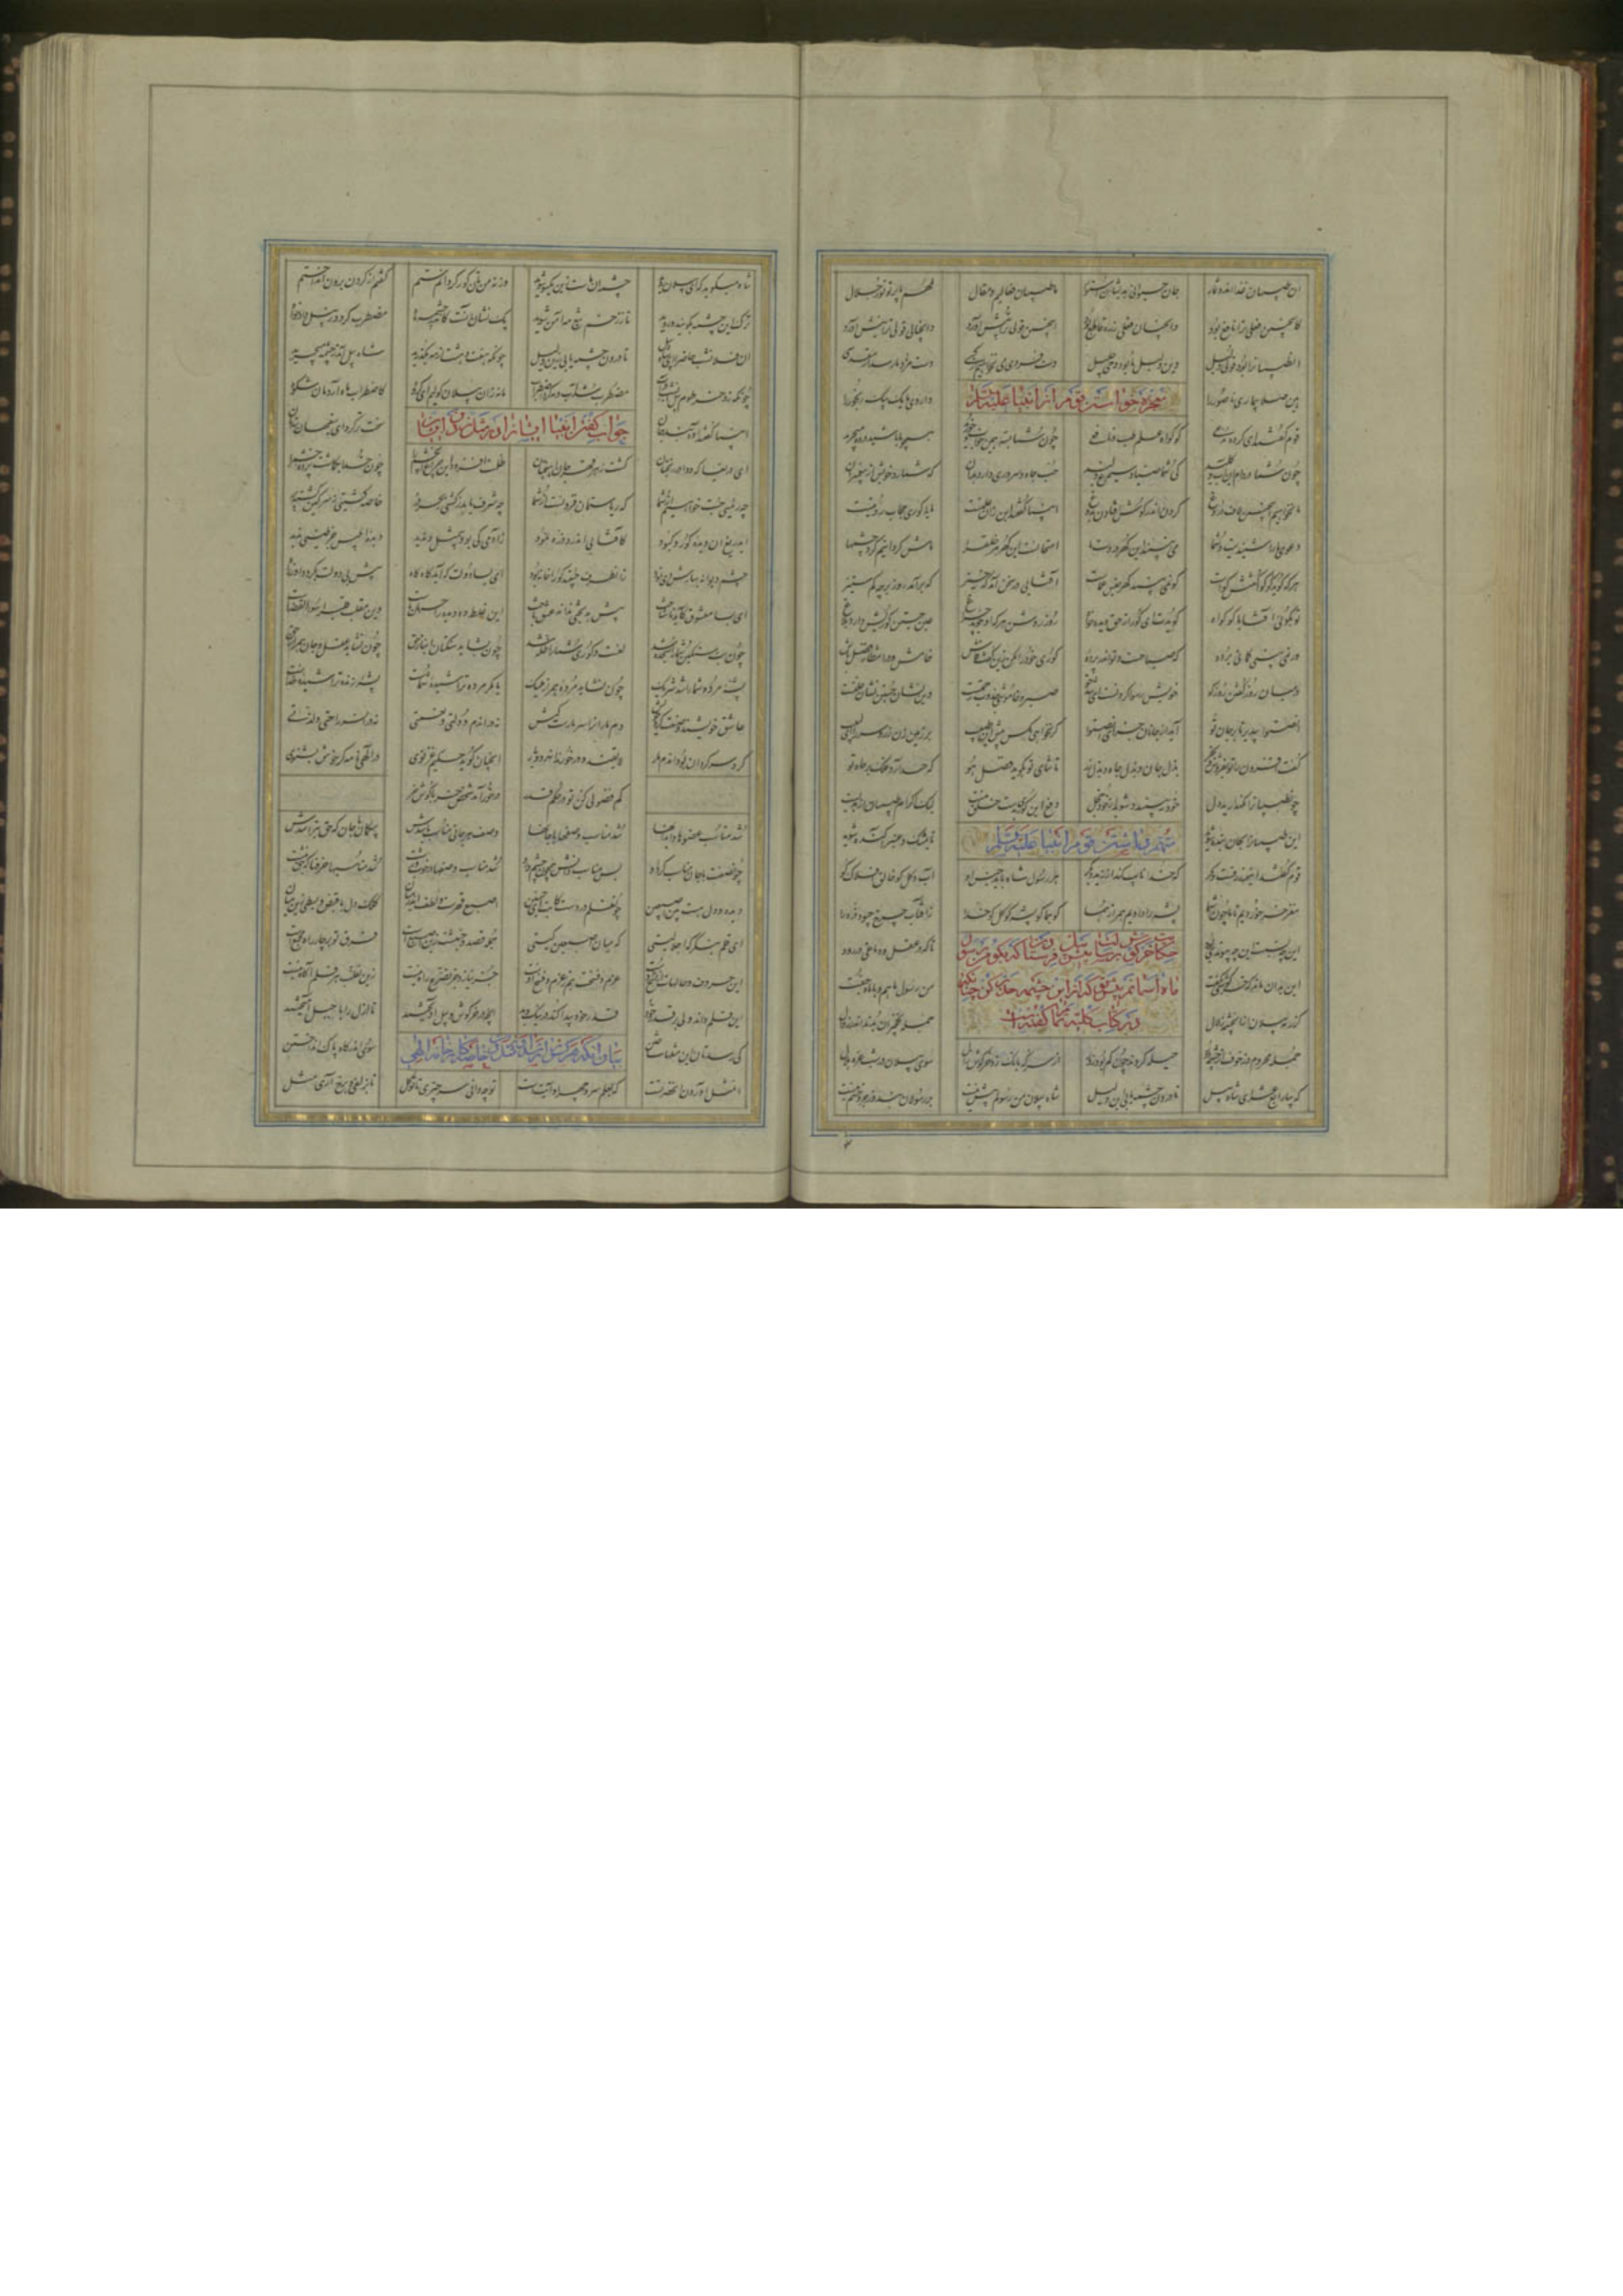 ان طبیبان غذااند و ثمار جان حیوانی بدیشان استوار ما طبیبان فعالیم و مقال ملهم ما پرتو نور جلال
کاینچنین فعلی ترا نافع بود وانچنان فعلی ز ره قاطع بود اینچنین قولی ترا پیش آورد وانچنان قولی ترا نیش آورد
ان طبیبان را بود بولی دلیل وین دلیل ما بود وحی جلیل دست مزدی می نخواهیم از کسی دست مزد ما رسد از حق بسی
هین صلا بیماری ناصور را داروی ما یک بیک رنجور را
معجزه خواستن قوم از انبیا علیهم السلام
قوم گفتند ای گروه مدعی کو گواه علم طب و نافعی چون شما بسته همین خواب و خورید همچو ما باشید در ده میچرید
چون شما در دام این آب و گلید کی شما صیاد سیمرغ دلید حب جاه و سروری دارد بران که شمارد خویش از پیغمبران
ما نخواهیم اینچنین لاف و دروغ کردن اندر گوش و افتادن بدوغ انبیا گفتند کین زان علتست مایه کوری حجاب رؤیتست
دعوی ما را شنیدیت و شما می نبینید این گهر در دست ما امتحانست این گهر مر خلق را ماش گردانیم گرد چشمها
هر که گوید کو گوا گفتش گواست کو نمی بیند گهر حبس عماست آفتابی در سخن آمد که خیز که برآمد روز برجه کم ستیز
تو بگویی آفتابا کو گواه گویدت ای کور از حق دیده خواه روز روشن هر که او جوید چراغ عین جستن کوریش دارد بلاغ
ور نمی بینی گمانی برده که صباحست و تو اندر پرده کوری خود را مکن زین گفت فاش خامش و در انتظار فضل باش
در میان روز گفتن روز کو خویش رسوا کردنست ای روزجو صبر و خاموشی جذوب رحمتست وین نشان جستن نشان علتست
انصتوا بپذیر تا بر جان تو آید از جانان جزای انصتوا گر نخواهی نکس پیش این طبیب بر زمین زن زر و سر را ای لبیب
گفت افزون را تو بفروش و بخر بذل جان و بذل جاه و بذل زر تا ثنای تو بگوید فضل هو که حسد آرد فلک بر جاه تو
چون طبیبان را نگه دارید دل خود ببینید و شوید از خود خجل دفع این کوری بدست خلق نیست لیک اکرام طبیبان از هدیست
این طبیبان را بجان بنده شوید تا بمشک و عنبر آکنده شوید
متهم داشتن قوم انبیا علیهم السلام
قوم گفتند این همه زرقست و مکر که خدا نایب کند از زید و بکر هر رسول شاه باید جنس او آب و گل کو خالق افلاک کو
مغز خر خوردیم تا ما چون شما پشه را داریم همراز هما کو هما کو پشه کو گل کو خدا ز آفتاب چرخ چبود ذره را
این چه نسبت این چه پیوندی بود تا که در عقل و دماغی در رود
حکایت خرگوش برسالت پیش پیل که بگو من رسول
ماه آسمانم پیش تو که از این چشمه حذر کن چنانکه
در کتاب کلیله تمام گفته است
این بدان ماند که خرگوشی بگفت من رسول ماهم و با ماه جفت
کز رمه پیلان ازان چشمه زلال جمله نخجیران بدند اندر وبال
جمله محروم و ز خوف از چشمه دور حیله کردند چون کم بود زور از سر که بانگ زد خرگوش زال سوی پیلان در شب غره هلال
که بیا رابع عشر ای شاه پیل تا درون چشمه یابی این دلیل شاه پیلان من رسولم پیش بیست بر رسولان بند و زجر و خشم نیست
ماه میگوید که ای پیلان روید چشمه آن ماست زین یکسو شوید ورنه من تان کور گردانم ستم گفتم از گردن برون انداختم
ترک این چشمه بگویید و روید تا ز زخم تیغ مه ایمن شوید نک نشان آنست کاندر چشمه ماه مضطرب گردد ز پیل آبخواه
آن فلان شب حاضر آ ای شاه پیل تا درون چشمه یابی زین دلیل چونکه هفت و هشت از مه بگذرید شاه پیل آمد ز چشمه میچرید
چونکه زد خرطوم پیل آن شب در آب مضطرب شد آب و مه کرد اضطراب ما نه زان پیلان گولیم ای گروه کاضطراب ماه آردمان شکوه
انبیا گفتند آوه پند جان سخت تر کرد ای سفیهان بندتان
جواب گفتن انبیا ایشان را و مثل زدن ایشان
ای دریغا که دوا در رنجتان گشت زهر قهر جان آهنجتان ظلمت افزود این چراغ آن چشم را چون خدا بگماشت پرده خشم را
چه رئیسی جست خواهیم از شما که ریاستمان فزونست از سما چه شرف یابد ز کشتی بحر در خاصه کشتی ز سرگین گشته پر
ای دریغ آن دیده کور و کبود کافتابی اندرو ذره نمود ز آدمی که بود بی مثل و ندید دیده ابلیس جز طینی ندید
چشم دیوانه بهارش دی نمود زان طرف جنبید کو را خانه بود ای بسا دولت که آید گاه گاه پیش بی دولت بگردد او ز راه
ای بسا معشوق کاید ناشناخت پیش بدبختی نداند عشق باخت این غلط ده دیده را حرمان ماست وین مقلب قلب را سوء القضاست
چون بت سنگین شما را قبله شد لعنت و کوری شما را ظله شد چون بشاید سنگتان انباز حق چون نشاید عقل و جان همراز حق
پشه مرده هما را شد شریک چون نشاید مرده همراز ملیک یا مگر مرده تراشیده شماست پشه زنده تراشیده خداست
عاشق خویشید و صنعت کرد خویش دم ماران را سر مارست کیش نه دران دم دولتی و نعمتی نه دران سر راحتی و لذتی
گرد سر گردان بود آن دم مار لایقند و درخورند آن هر دو یار آنچنان گوید حکیم غزنوی در الهی نامه گر خوش بشنوی
کم فضولی کن تو در حکم قدر درخور آمد شخص خر با گوش خر
شد مناسب عضوها و ابدانها شد مناسب وصفها با جانها وصف هر جانی تناسب باشدش بیگمان با جان که حق بتراشدش
چون صفت با جان قرین کردست او پس مناسب دانش همچون چشم و رو شد مناسب وصفها در خوب و زشت شد مناسب حرفها که حق نبشت
دیده و دل هست بین اصبعین چون قلم در دست کاتب ای حسین اصبع قهرست و لطف اندر میان کلک دل با قبض و بسطی زین بنان
ای قلم بنگر گر اجلالیستی که میان اصبعین کیستی جمله قصد و جنبشت زین اصبعست فرق تو بر چار راه مجمعست
این حروف و حالهات از نسخ اوست عزم و فسخت هم ز عزم و فسخ اوست جز نیاز و جز تضرع راه نیست زین تقلب هر قلم آگاه نیست
این قلم داند ولی بر قدر خود قدر خود پیدا کند در نیک و بد آنچه در خرگوش و پیل آویختند تا ازل را با حیل آمیختند
کی رسدتان این مثلها ساختن سوی آن درگاه پاک انداختن
بیان آنکه هر کس را نرسد مثل آوردن خاصه در کار خانه الهی
آن مثل آوردن آن حضرتست که بعلم سر و جهر او آیتست تو چه دانی سر چیزی تا تو کل تا بزلفی و برخ آری مثل